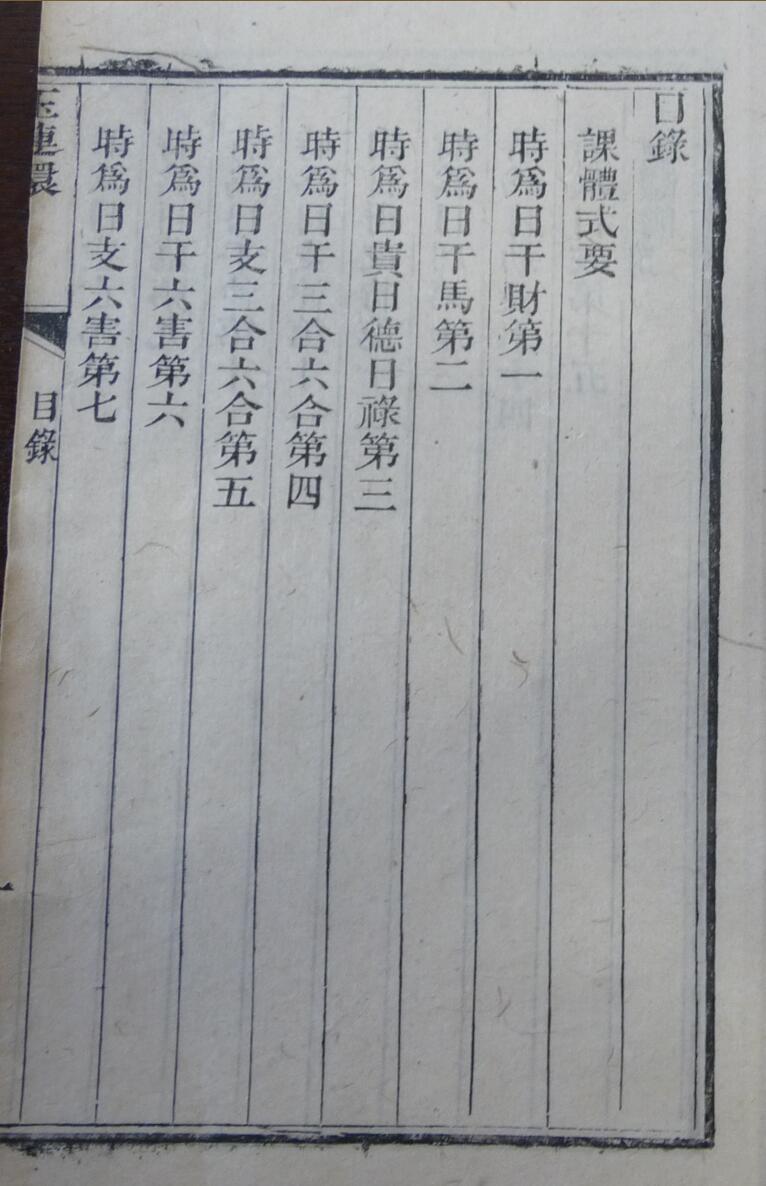 目錄
課體式要
時爲日干財第一
時爲日干馬第二
時爲日貴日德日祿第三
時爲日干三合六合第四
時爲日支三合六合第五
時爲日干六害第六
時爲日支六害第七
玉連環
目錄